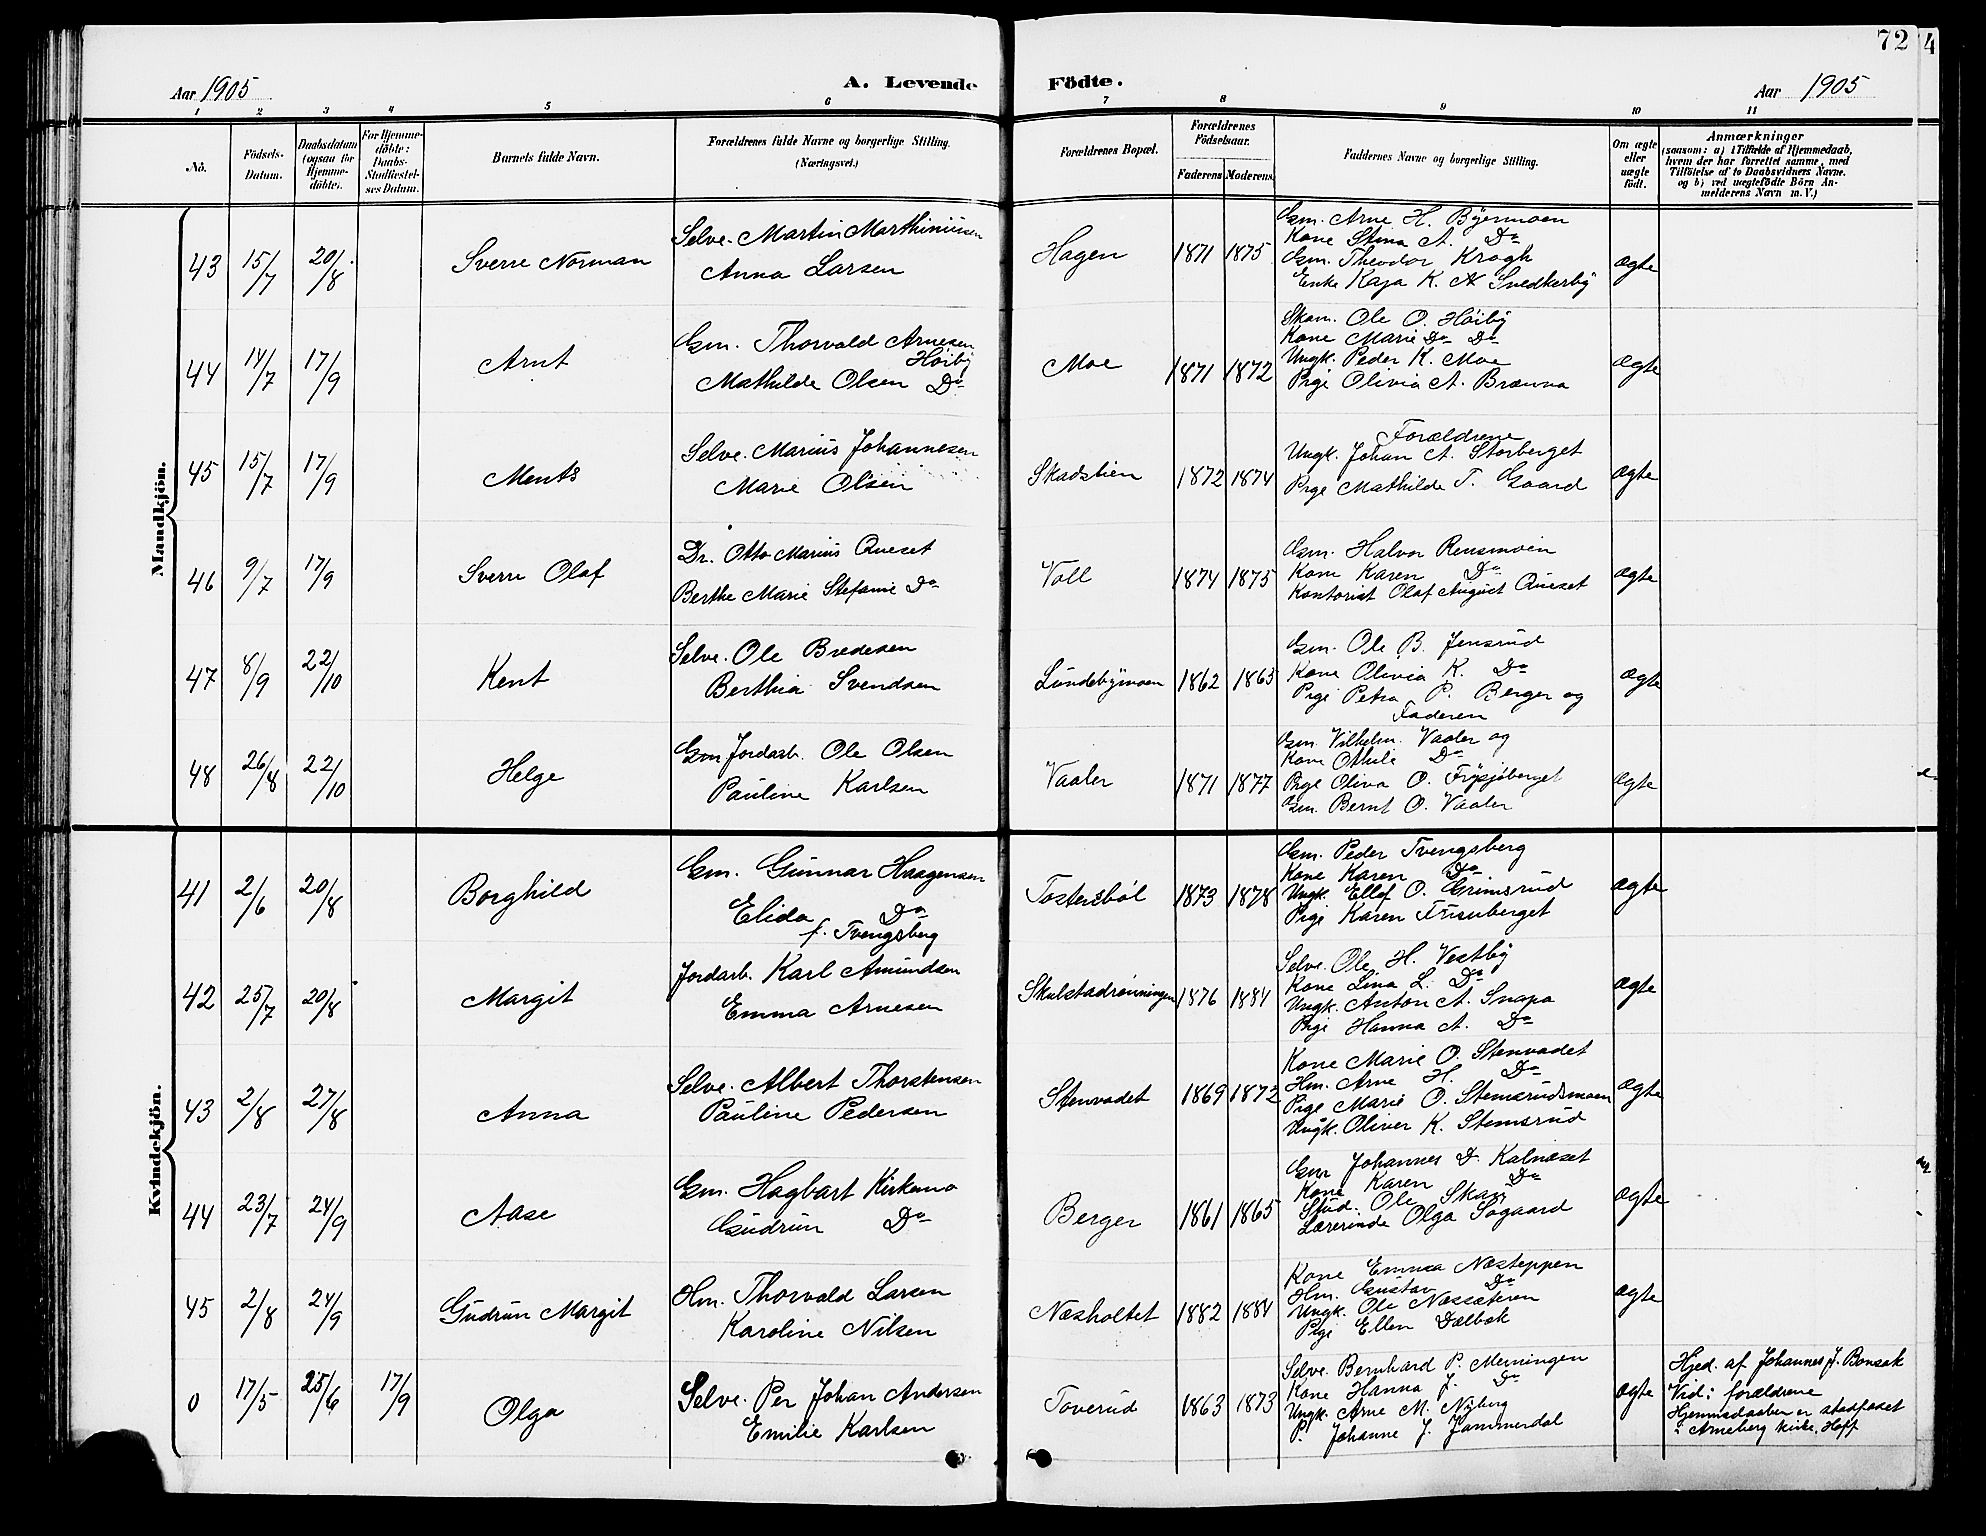 72
4
Aar 1905
A. Levende Födte.
Aar 1905
1 2 3 4 5 6 7 8 9 10 11
No.
Födsels-
Datum.
Daabsdatum
(ogsaa for
Hjemme-
döbte).
For Hjemme-
döbte:
Daabs-
Stadfæstel-
ses Datum.
Barnets fulde Navn.
Forældrenes fulde Navne og borgerlige Stilling.
(Næringsvei.)
Forældrenes Bopæl.
Forældrenes
Födselsaar.
Faderens Moderens
Faddernes Navne og borgerlige Stilling.
Om ægte
eller
uægte
födt.
Anmærkninger
(saasom: a) i Tilfælde af Hjemmedaab,
hvem der har forrettet samme, med
Tilföielse af to Daabsvidners Navne.
og b) ved uægtefödte Börn An-
melderens Navn m. V.)
Mandkjön.
43 15/7 20/8 Sverre Norman
Selve. Martin Marthinüsen
Anna Larsen
Hagen 1871 1875
Gm. Arne H. Byermoen
Kone Stina A. Do
Gm. Theodor Krogh
Enke Kaja K. A. Svedkerby
ægte
44 14/7 17/9 Arnt
Gm. Thorvald Arnesen
Høiby
Mathilde Olsen Do
Moe 1871 1872
Skom. Ole O. Høiby
Kone Marie Do Do
Ungk. Peder K. Moe
Pige Olivia A. Brænna
ægte
45 15/7 17/9 Ments
Selve. Marius Johannesen
Marie Olsen
Skadstien 1872 1874
Forældrene
Ungk. Johan A. Storberget
Pige Mathilde T. Gaard
ægte
46 9/7 17/9 Sverre Olaf
Dr. Otto Marius Qveset
Berthe Marie Stefanie Do
Voll 1874 1875
Gm. Halvor Rensmoen
Kone Karen Do
Kontorist Olaf August Qveset
ægte
47 8/9 22/10 Kent
Selve. Ole Bredesen
Berthia Svendsen
Lundebymoen 1862 1863
Gm. Ole B. Jensrud
Kone Olivia K. Do
Pige Petra P. Berger og
Faderen
ægte
48 26/8 22/10 Helge
Gm Jordarb. Ole Olsen
Pauline Karlsen
Vaaler 1871 1877
Gm. Vilhelm. Vaaler og
Kone Othile Do
Pige Oliva O. Frysjøberget
Gm. Bernt O. Vaaler
ægte
Kvindekjön.
41 2/6 20/8 Borghild
Gm. Gunnar Haagensen
Elida Do
f. Tvengsberg
Tostersbøl 1873 1878
Gm. Peder Tvengsberg
Kone Karen Do
Ungk. Ellef O. Grimsrud
Pige Karen Furuberget
ægte
42 25/7 20/8 Margit
Jordarb. Karl Amundsen
Emma Arnesen
Skulstadrønningen 1876 1884
Selve. Ole H. Vestby
Kone Lina L. Do
Ungk. Anton A. Snapa
Pige Hanna A. Do
ægte
43 2/8 27/8 Anna
Selve. Albert Thorstensen
Pauline Pedersen
Stenvadet 1869 1872
Kone Marie O. Stenvadet
Hm. Arne H. Do
Pige Marie O. Stemsrudsmoen
Ungk. Oliver K. Stemsrud
ægte
44 23/7 24/9 Aase
Gm. Hagbart Kirkemo
Gudrun Do
Berger 1861 1865
Gm Johannes D. Kalnæset
Kone Karen Do
Stud. Ole Skar
Lærerinde Olga Søgaard
ægte
45 2/8 24/9 Gudrun Margit
Hm. Thorvald Larsen
Karoline Nilsen
Næsholtet 1882 1884
Kone Emma Næsteppen
Hm. Gustav Do
Ungk. Ole Næssæteren
Pige Ellen Dælbæk
ægte
0 17/5 25/6 17/9 Olga
Selve. Per Johan Andersen
Emilie Karlsen
Toverud 1863 1873
Selve. Bernhard P. Menningen
Kone Hanna J. Do
Ungk. Arne M. Nyberg
P. Johanne J. Jammerdal
ægte
Hjed. af Johannes J. Bonsak
Vid: forældrene
Hjemmedaaben er stadfæstet
i Arneberg kirke, Hoff